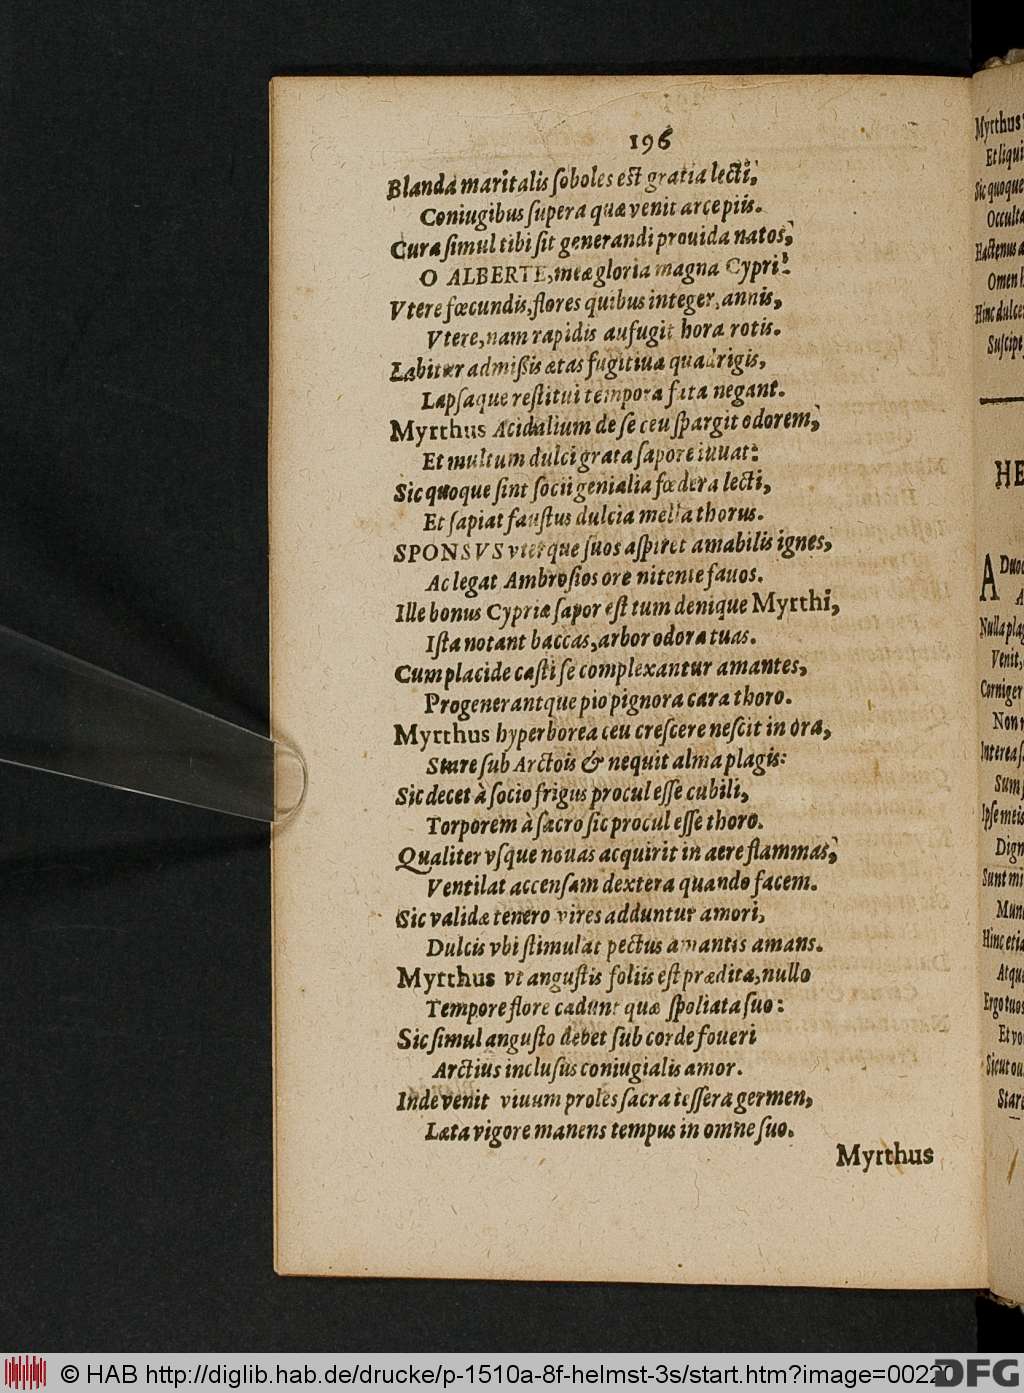 196
Blanda maritalis ſoboles eſt gratia lecti,
Coniugibus ſupera quæ venit arce piis.
Cura ſimul tibi ſit generandi prouida natos,
O ALBERTE, meæ gloria magna Cypri!
Vtere fœcundis, flores quibus integer, annis,
Vtere, nam rapidis aufugit hora rotis.
Labitur admiſsis ætas fugitiua quadrigis,
Lapſaque reſtitui tempora fata negant.
Myrthus Acidalium de ſe ceu ſpargit odorem,
Et multum dulci grata ſapore iuuat:
Sic quoque ſint ſocii genialia fœdera lecti,
Et ſapiat fauſtus dulcia mella thorus.
SPONSVS vterque ſuos aſpiret amabilis ignes,
Ac legat Ambroſios ore nitente fauos.
Ille bonus Cypriæ ſapor eſt tum denique Myrthi,
Iſta notant baccas, arbor odora tuas.
Cum placide caſti ſe complexantur amantes,
Progenerantque pio pignora cara thoro.
Myrthus hyperborea ceu creſcere neſcit in ora,
Stare ſub Arctois & nequit alma plagis:
Sic decet à ſocio frigus procul eſſe cubili,
Torporem à ſacro ſic procul eſſe thoro.
Qualiter vſque nouas acquirit in aere flammas,
Ventilat accenſam dextera quando facem.
Sic validæ tenero vires adduntur amori,
Dulcis vbi ſtimulat pectus amantis amans.
Myrthus vt anguſtis foliis eſt prædita, nullo
Tempore flore cadunt quæ ſpoliata ſuo:
Sic ſimul anguſto debet ſub corde foueri
Arctius incluſus coniugialis amor.
Inde venit viuum proles ſacra teſſera germen,
Læta vigore manens tempus in omne ſuo.
Myrthus
Myrthus
Et liqui
Sic quoque
Occulta
Hactenus a
Omen
Hinc dulce
Suſcipe
HE
ADuo
A
Nulla plag
Venit,
Corniger
Non
Interea ſ
Sum
Ipſe meis
Dign
Sunt mi
Mun
Hinc etia
Atque
Ergo tuos
Et vo
Sicut ou
Stare
© HAB http://diglib.hab.de/drucke/p-1510a-8f-helmst-3s/start.htm?image=00220
DFG